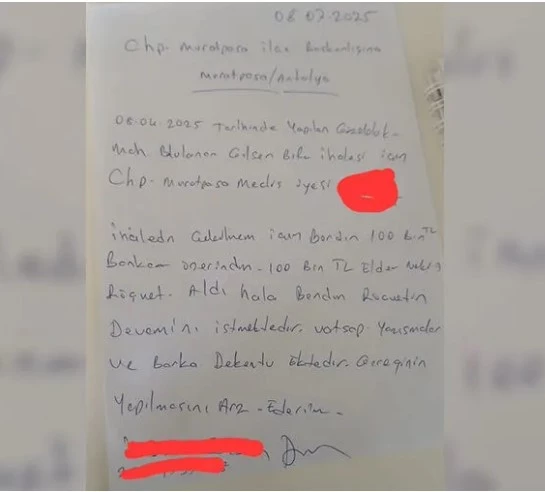 08.07.2025
Chp- Muratpasa ilçe Baskanlığına
Muratpasa/Antalya
08.04.2025 Tarihinde Yapılan Güzeloluk-
Mah. Bulunan Gülsen Büfe ihalesi icin
Chp- Muratpasa Meclis üyesi
icin Bendin 100 bin TL
Banka üzerindn. 100 Bin TL Elden
Rüşvet. Aldı hala Bendn Rüşvetin
Devamını istmektedir. vatsap Yazısmalar
ve Banka Dekontu Ektedir. Gereginin
Yapılmasını Arz. Ederim-